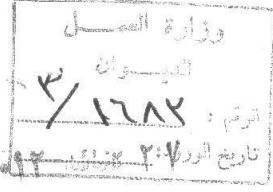 وزارة العمل
الديوان
الرقم : ٣/١٦٨٢
تاريخ الورود: